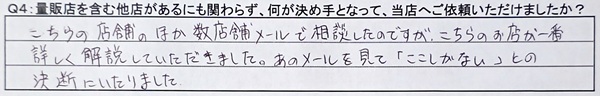 Q4：量販店を含む他店があるにも関わらず、何が決め手となって、当店へご依頼いただけましたか？
こちらの店舗のほか数店舗メールで相談したのですが、こちらのお店が一番
詳しく解説していただきました。あのメールを見て「ここしかない」との
決断にいたりました